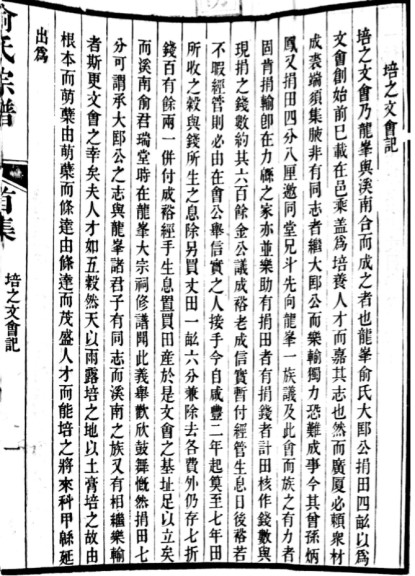 培之文會記
培之文會乃龍峯與溪南合而成之者也龍峯俞氏大郎公捐田四畝以爲
文會創始前已載在邑乘蓋爲培養人才而嘉其志也然而廣厦必頼衆材
成裘端須集腋非有同志者繼大郎公而樂輸獨力恐難成事今其曾孫炳
鳳又捐田四分八厘邀同堂兄斗先向龍峯一族議及此會而族之有力者
固肯捐輸卽在力緜之家亦並樂助有捐田者有捐錢者計田核作錢數與
現捐之錢數約其六百餘金公議成裕老成信實暫付經管生息日後裕若
不暇經管則必由在會公舉信實之人接手今自咸豐二年起算至七年田
所收之穀與錢所生之息除另買丈田一畝六分兼除去各費外仍存七折
錢百有餘兩一併付成裕經手生息置買田産於是文會之基址足以立矣
而溪南俞君瑞堂時在龍峯大宗祠修譜聞此義舉歡欣鼓舞慨然捐田七
分可謂承大郎公之志與龍峯諸君子有同志而溪南之族又有相繼樂輸
者斯更文會之幸矣夫人才如五穀然天以雨露培之地以土膏培之故由
根本而萌蘖由萌蘖而條達由條達而茂盛人才而能培之將來科甲緜延
出爲
俞氏宗譜
首集
培之文會記
一